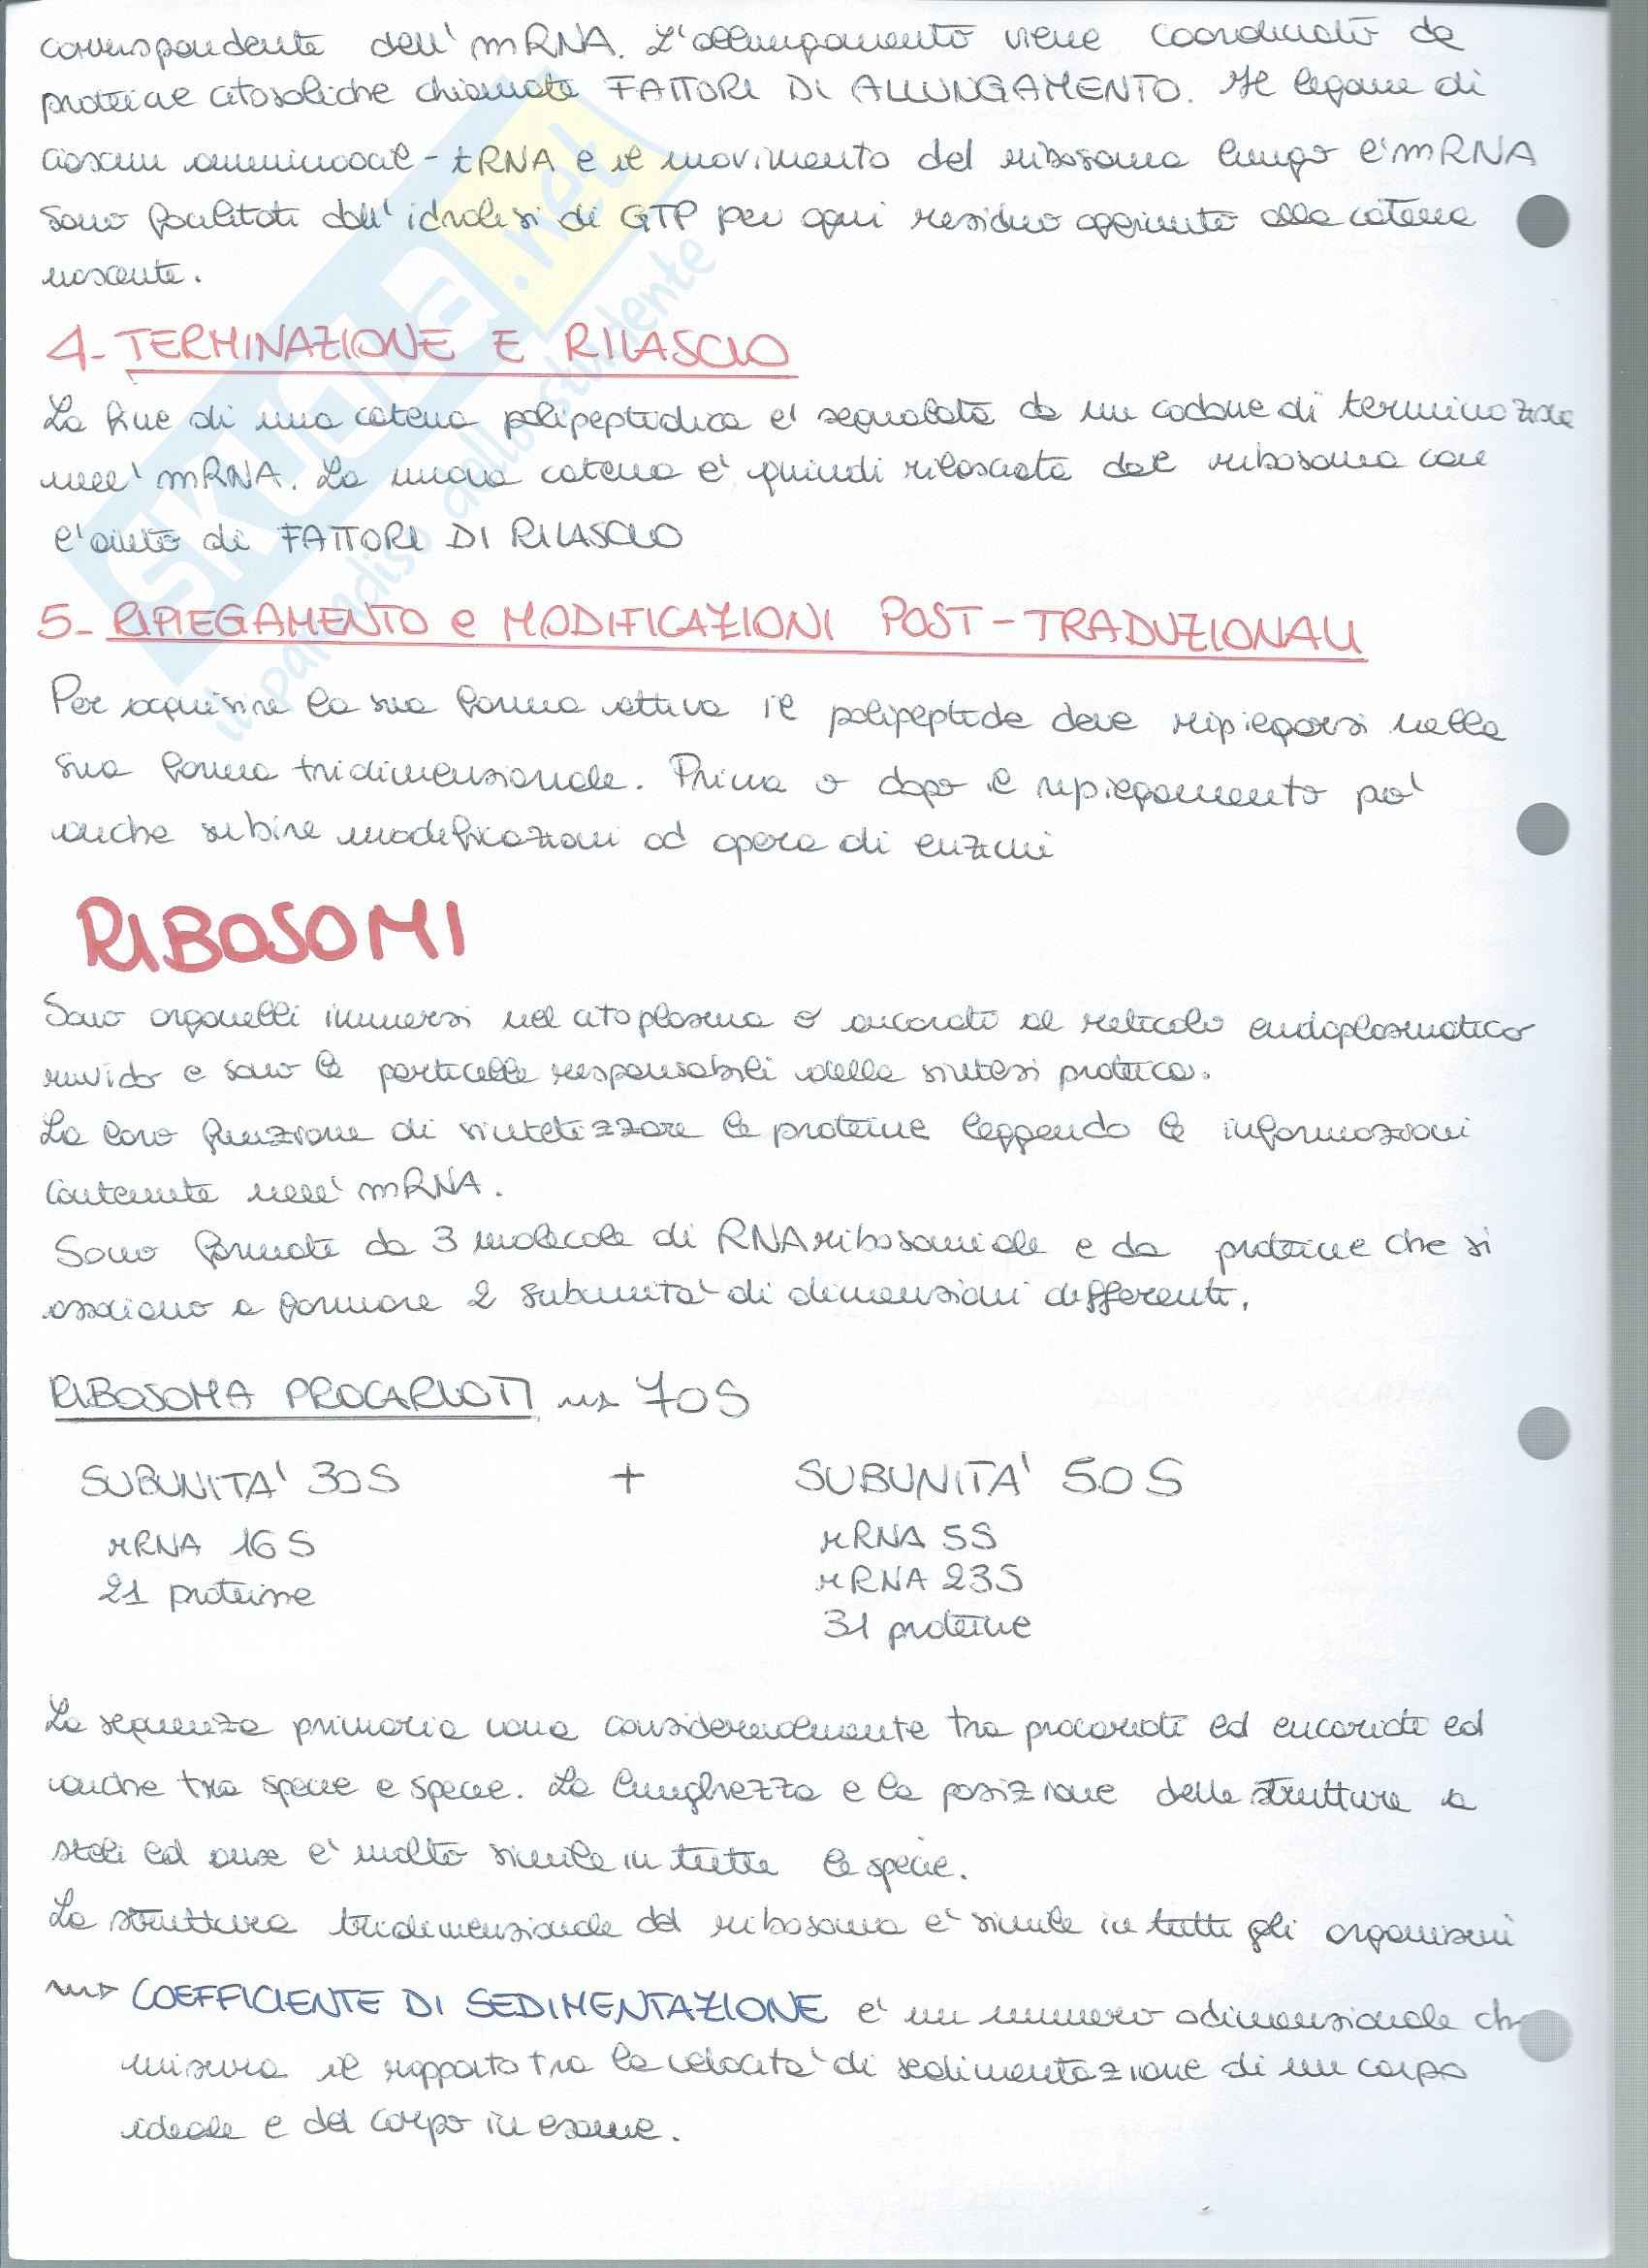 corrispondente dell'mRNA. L'allungamento viene coordinato da
proteine citosoliche chiamate FATTORI DI ALLUNGAMENTO. Il legame di
ciascun amminoacil-tRNA e il movimento del ribosoma lungo l'mRNA
sono facilitati dall'idrolisi di GTP per ogni residuo aggiunto alla catena
nascente.
4- TERMINAZIONE E RILASCIO
La fine di una catena polipeptidica e' segnalata da un codone di terminazione
nell'mRNA. La nuova catena e' quindi rilasciata dal ribosoma con
l'aiuto di FATTORI DI RILASCIO
5- RIPIEGAMENTO e MODIFICAZIONI POST-TRADUZIONALI
Per acquisire la sua forma attiva il polipeptide deve ripiegarsi nella
sua forma tridimensionale. Prima o dopo il ripiegamento po'
anche subire modificazioni ad opera di enzimi
RIBOSOMI
Sono organelli immersi nel citoplasma o ancorati al reticolo endoplasmatico
ruvido e sono le particelle responsabili della sintesi proteica.
La loro funzione di sintetizzare le proteine leggendo le informazioni
contenute nell'mRNA.
Sono formati da 3 molecole di RNA ribosomiale e da proteine che si
associano a formare 2 subunita' di dimensioni differenti.
RIBOSOMA PROCARIOTI → 70S
SUBUNITA' 30S + SUBUNITA' 50S
rRNA 16S rRNA 5S
21 proteine rRNA 23S
31 proteine
La sequenza primaria varia considerevolmente tra procarioti ed eucarioti ed
anche tra specie e specie. La lunghezza e la posizione delle strutture a
steli ed anse e' molto simile in tutte le specie.
La struttura tridimensionale del ribosoma e' simile in tutti gli organismi
→ COEFFICIENTE DI SEDIMENTAZIONE e' un numero adimensionale che
misura il rapporto tra la velocita' di sedimentazione di un corpo
ideale e del corpo in esame.
SKUOLA.net
il paradiso dello studente